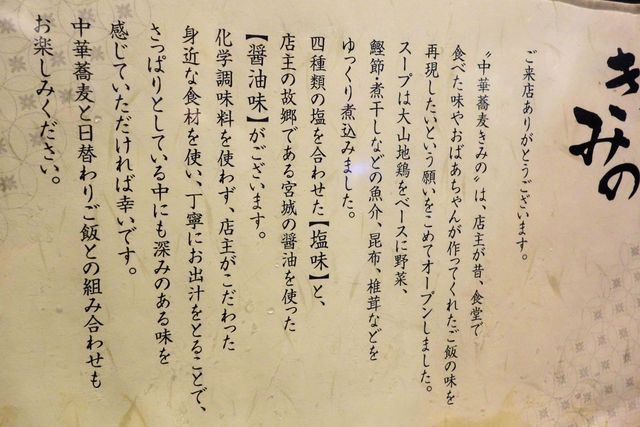 きみの
ご来店ありがとうございます。
“中華蕎麦きみの”は、店主が昔、食堂で
食べた味やおばあちゃんが作ってくれたご飯の味を
再現したいという願いをこめてオープンしました。
スープは大山地鶏をベースに野菜、
鰹節・煮干しなどの魚介、昆布、椎茸などを
ゆっくり煮込みました。
四種類の塩を合わせた【塩味】と、
店主の故郷である宮城の醤油を使った
【醤油味】がございます。
化学調味料を使わず、店主がこだわった
身近な食材を使い、丁寧にお出汁をとることで、
さっぱりとしている中にも深みのある味を
感じていただければ幸いです。
中華蕎麦と日替わりご飯との組み合わせも
お楽しみください。